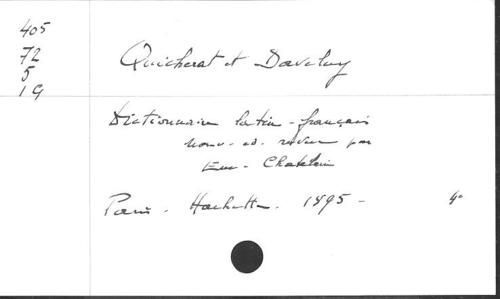 405
72
5
1 G
Quicherat et Daveluy
Dictionnaire latin-français
nouv. ed. revue par
Em. Chatelain
Paris. Hachette. 1895 - 4°